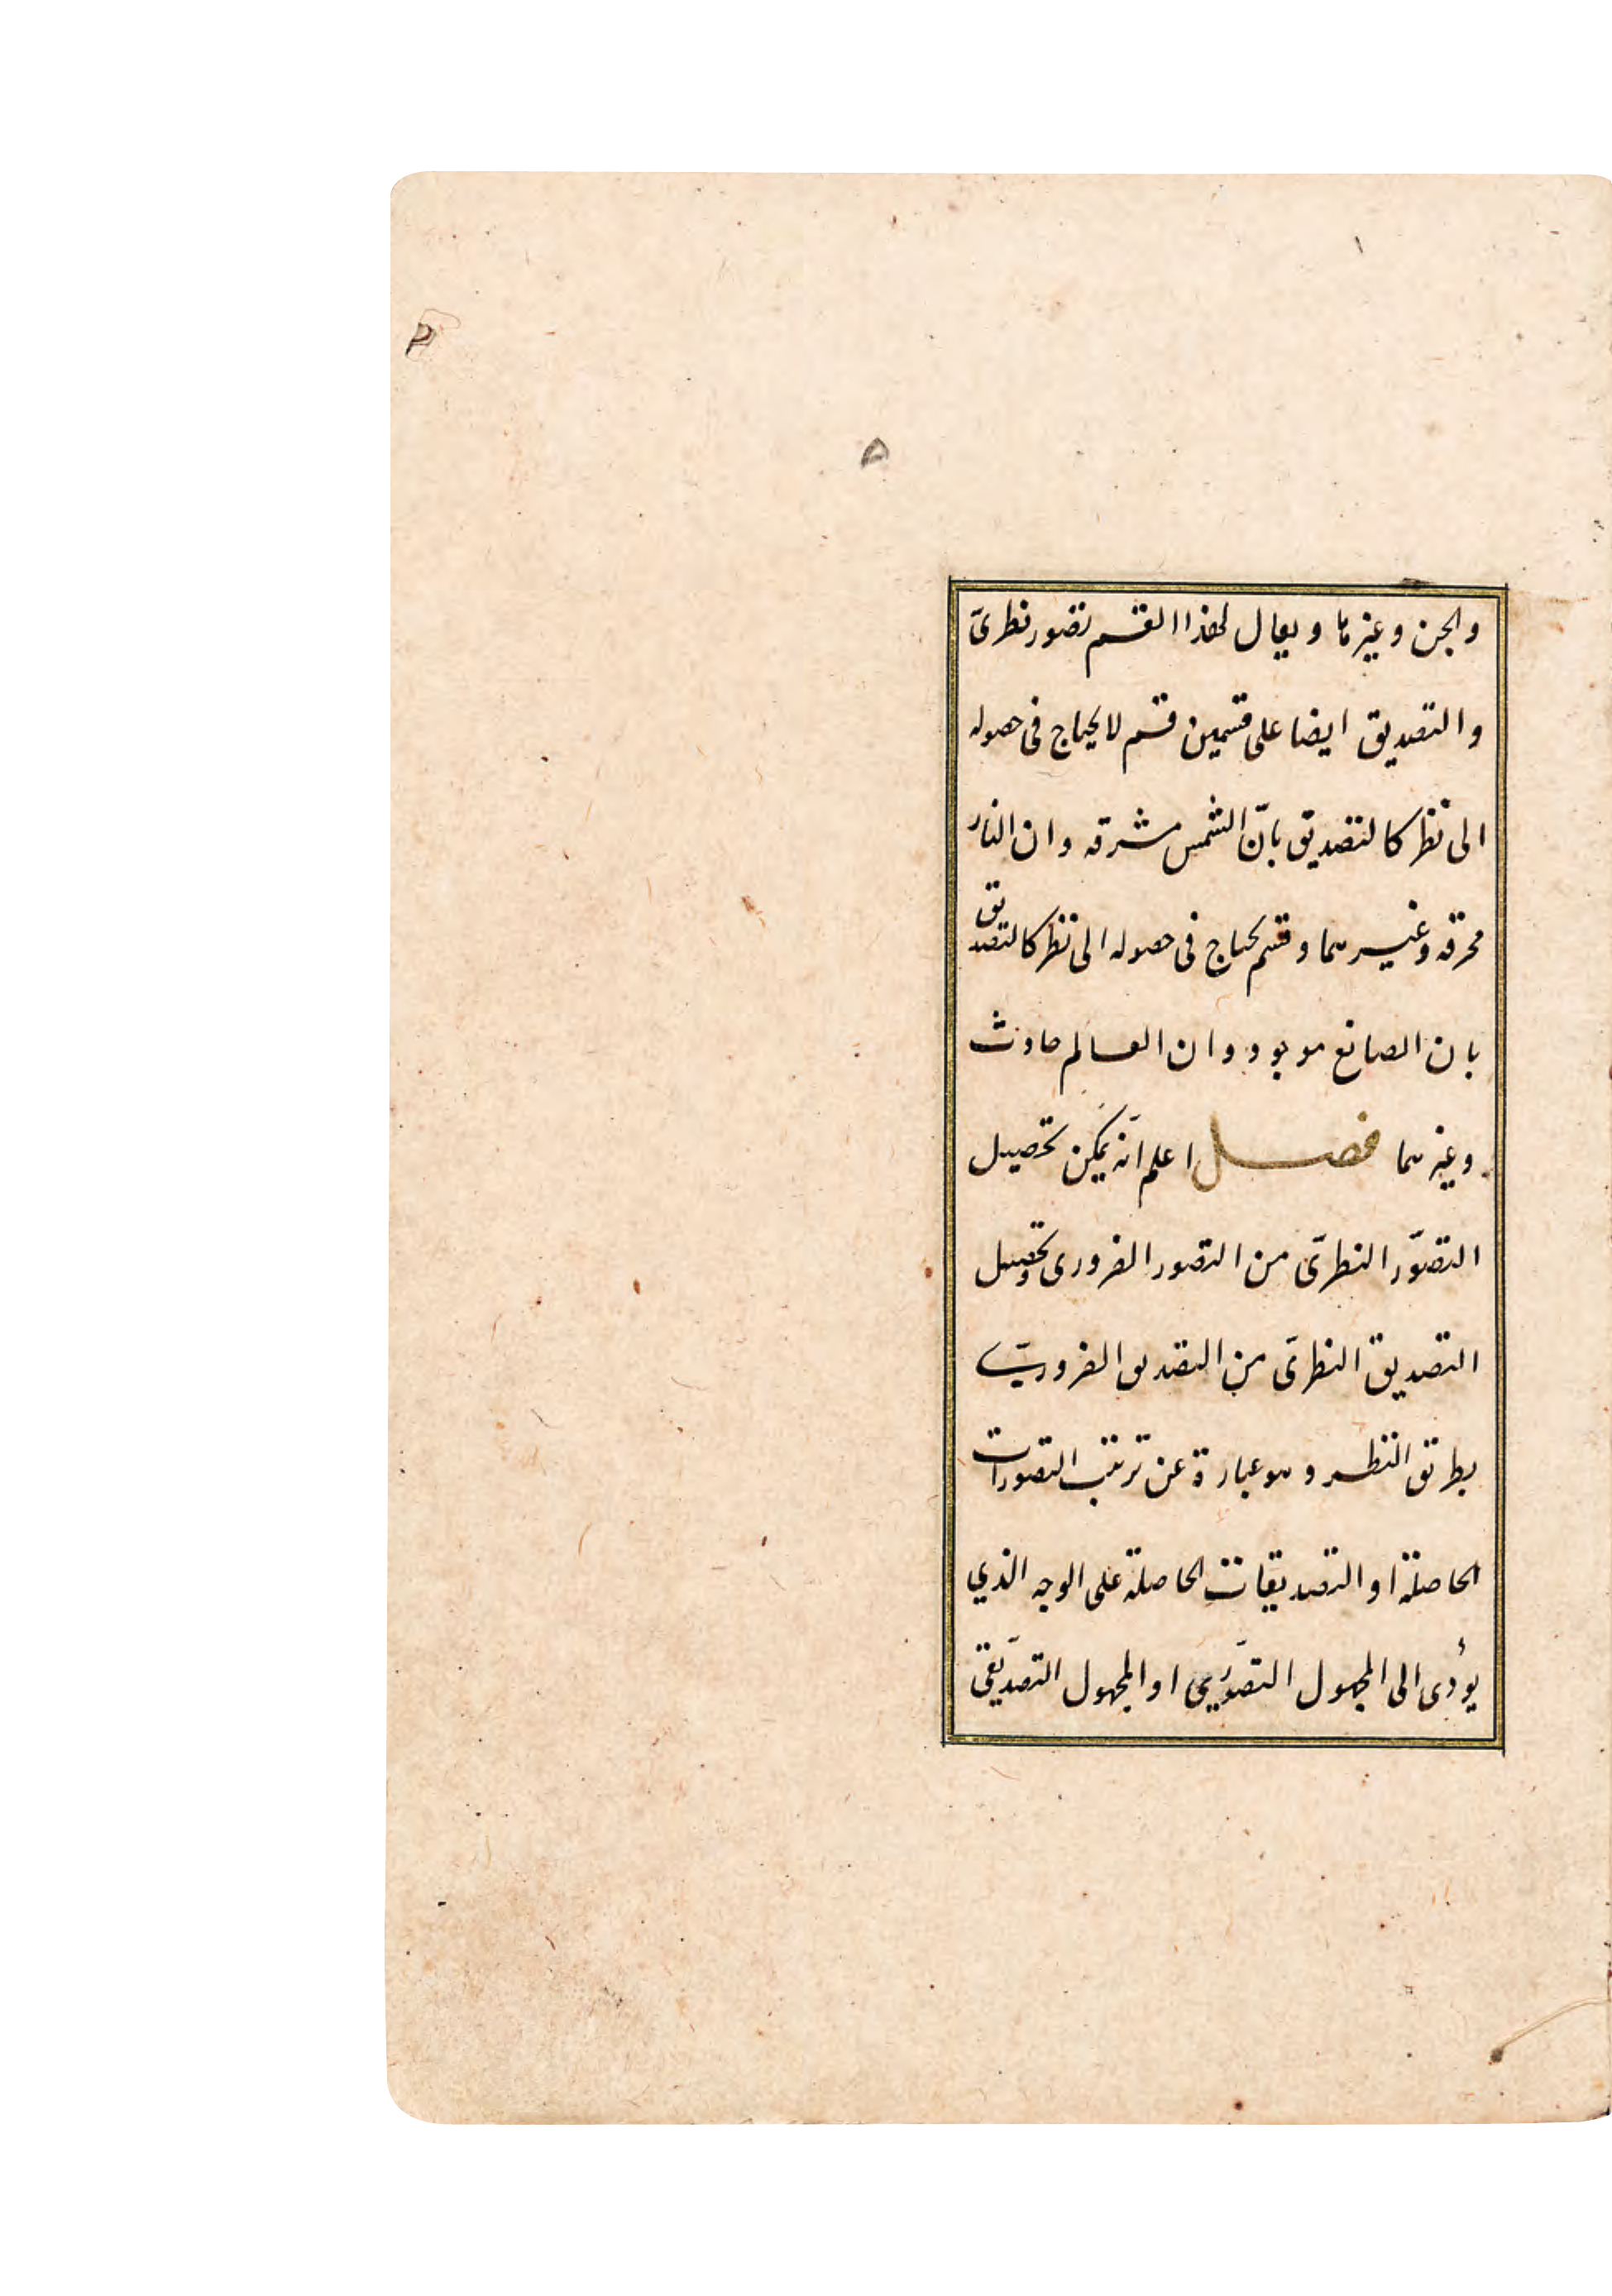 والجن وغيرها ويقال لهذا القسم تصور نظرىّ
والتصديق ايضا على قسمين قسم لا يحتاج فى حصوله
الى نظر كالتصديق بانّ الشمس مشرقه وان النار
محرقه وغيرهما وقسم يحتاج فى حصوله الى نظر كالتصديق
بان الصانع موجود وان العالم حادث
وغيرهما فصل اعلم انّه يمكن تحصيل
التصوّر النظرىّ من التصور الضرورى وتحصيل
التصديق النظرىّ من التصديق الضرورىّ
بطريق النظر وهو عبارة عن ترتيب التصورات
الحاصلة او التصديقات الحاصلة على الوجه الذي
يؤدى الى المجهول التصوّرى او المجهول التصديقى